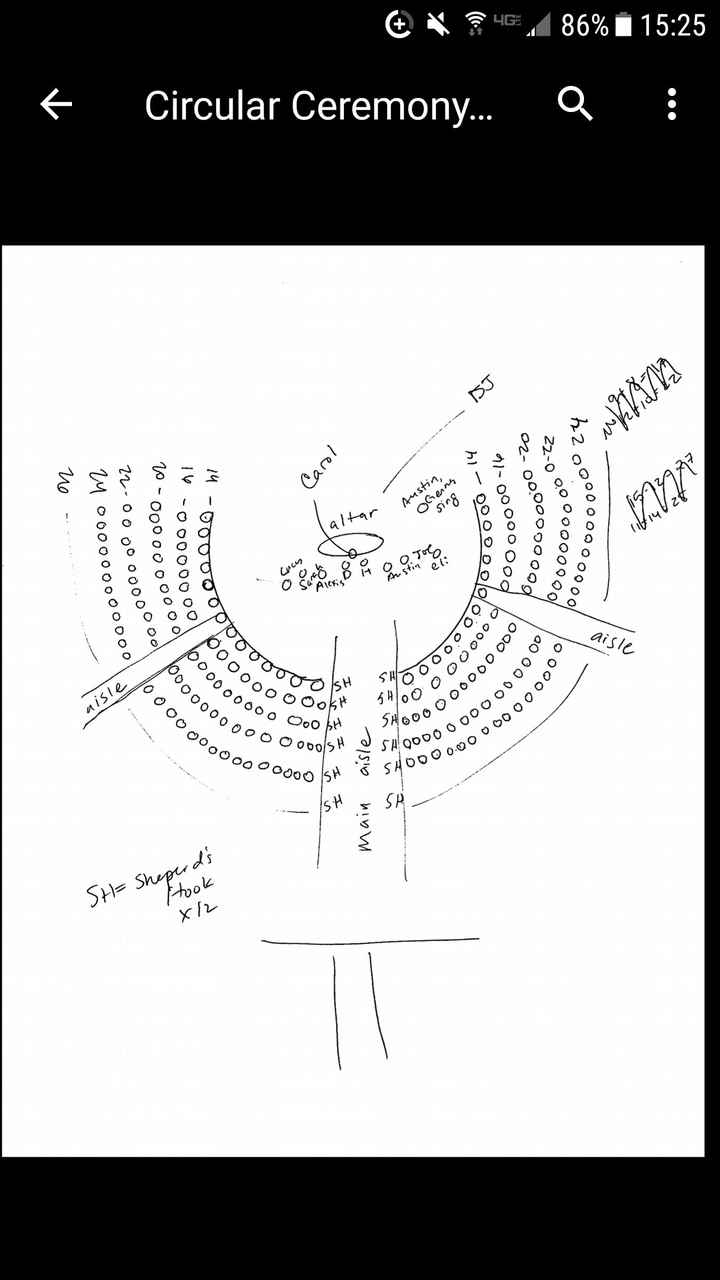 4GE 86% 15:25
Circular Ceremony...
DJ
Carol
altar
Austin,
sing
Sarah
Alexis
D H
Joe
Austin Eli
14
16
20
22
24
26
14
16
20
22
24
aisle
aisle
SH SH
SH SH
SH SH
SH SH
SH SH
SH SH
main aisle
SH= Sheperd's
Hook
x12